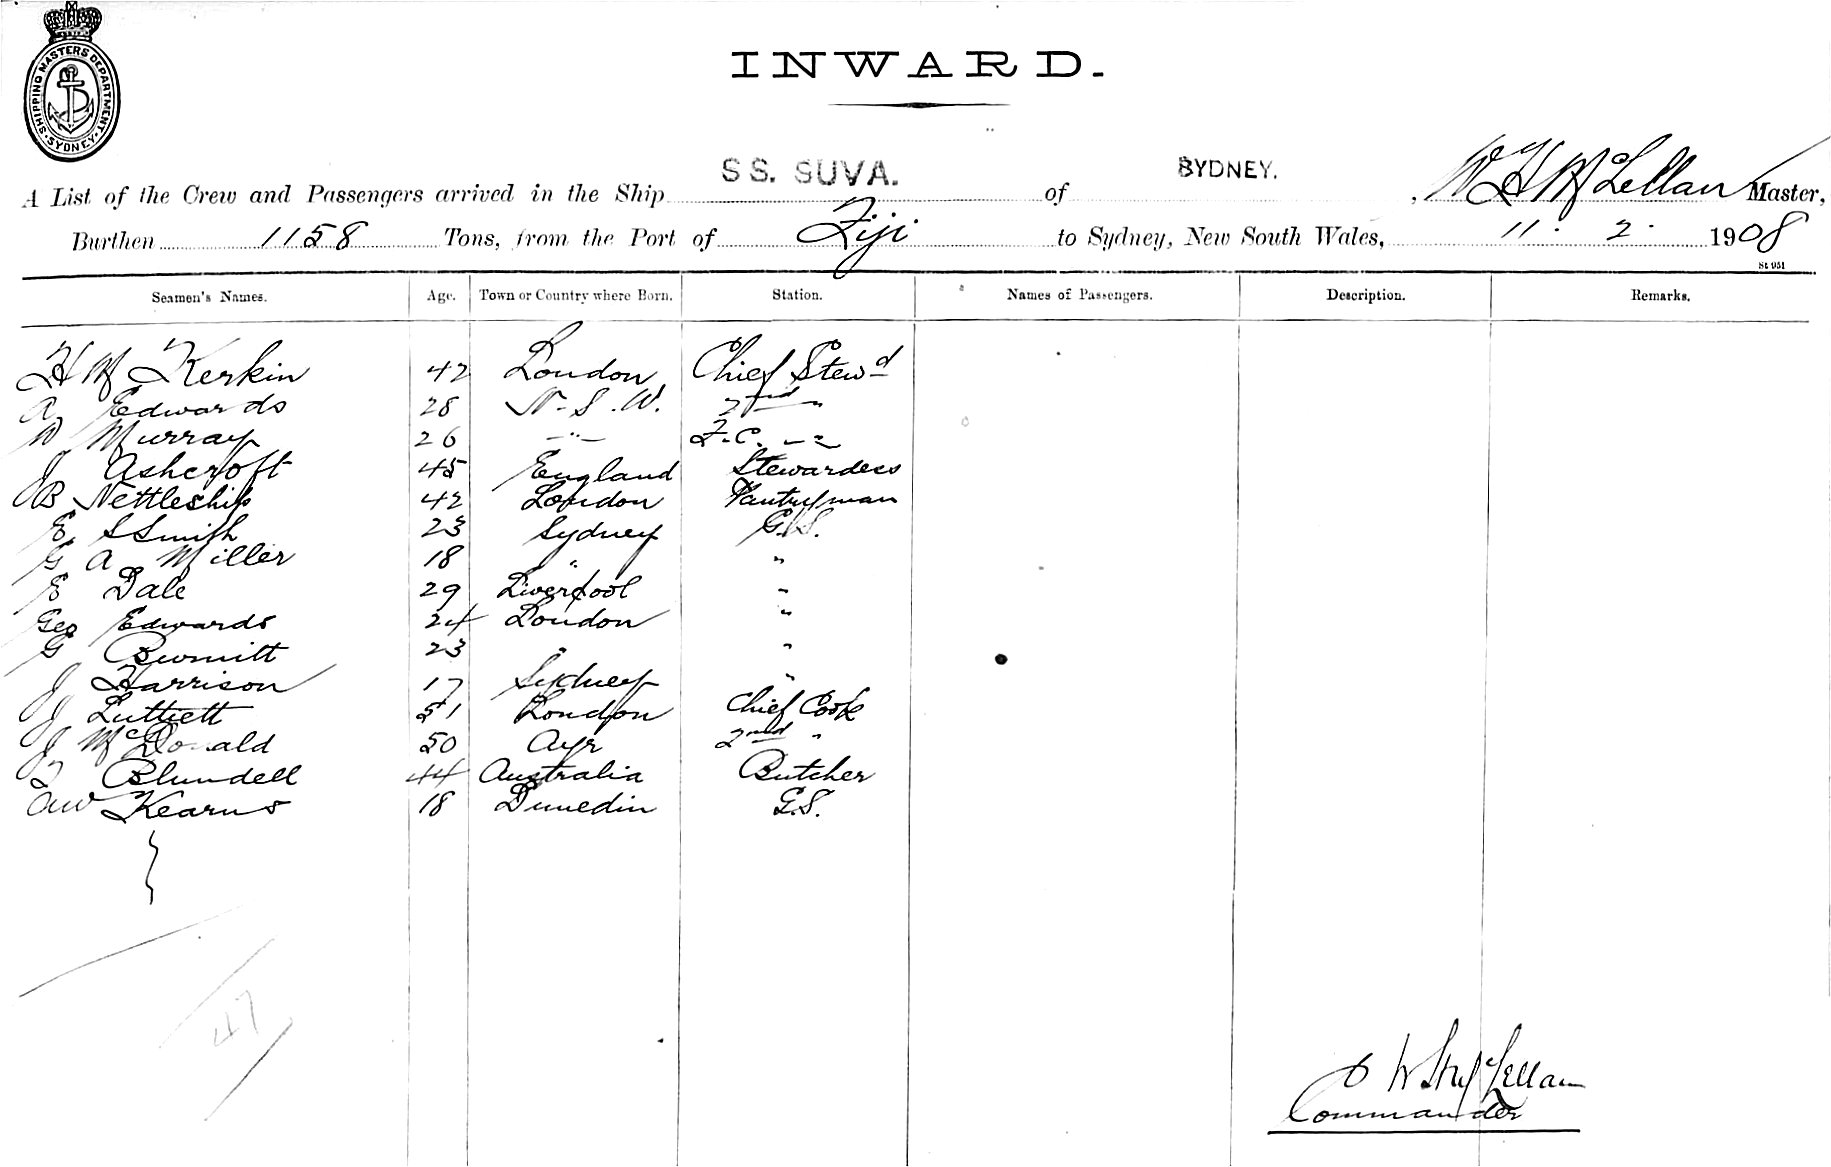 SHIPPING MASTERS DEPARTMENT. SYDNEY
INWARD.
A List of the Crew and Passengers arrived in the Ship SS. SUVA. of SYDNEY. , W H McLellan Master,
Burthen 1158 Tons, from the Port of Fiji to Sydney, New South Wales, 11. 2. 1908
St 951
Seamen's Names. Age. Town or Country where Born. Station. Names of Passengers. Description. Remarks.
H M Kerkin 42 London Chief Stewd
A Edwards 28 N.S.W. 2nd "
W Murray 26 -"- F.C. -"-
J Ashcroft 45 England Stewardess
B Nettleship 42 London Pantryman
E. S Smith 23 Sydney G.S.
G A Miller 18 " "
E Dale 29 Liverpool "
Geo Edwards 24 London "
G 23 " "
J Harrison 17 Sydney "
J Luttrett 51 London Chief Cook
J McDonald 50 Ayr 2nd "
T Blundell 44 Australia Butcher
AW Kearns 18 Dunedin G.S.
47
McLellan
Commander